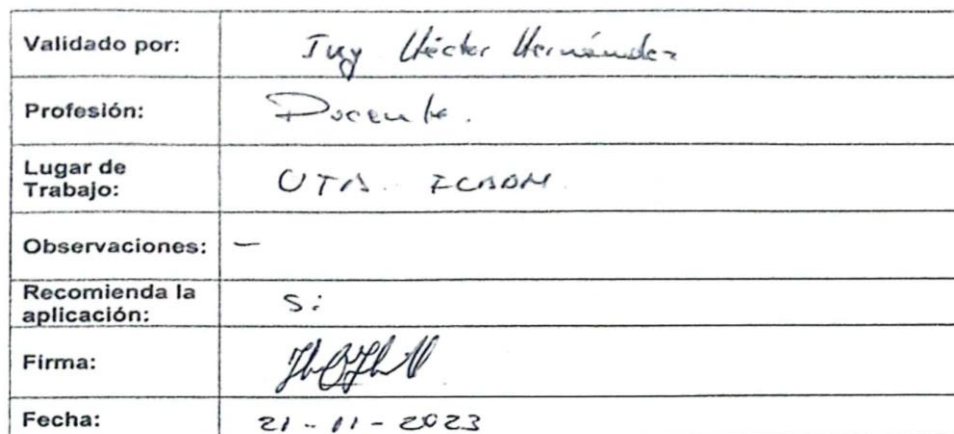 Validado por: Ing Héctor Hernández
Profesión: Docente.
Lugar de
Trabajo: UTA FCADM
Observaciones: —
Recomienda la
aplicación: Si
Firma:
Fecha: 21-11-2023